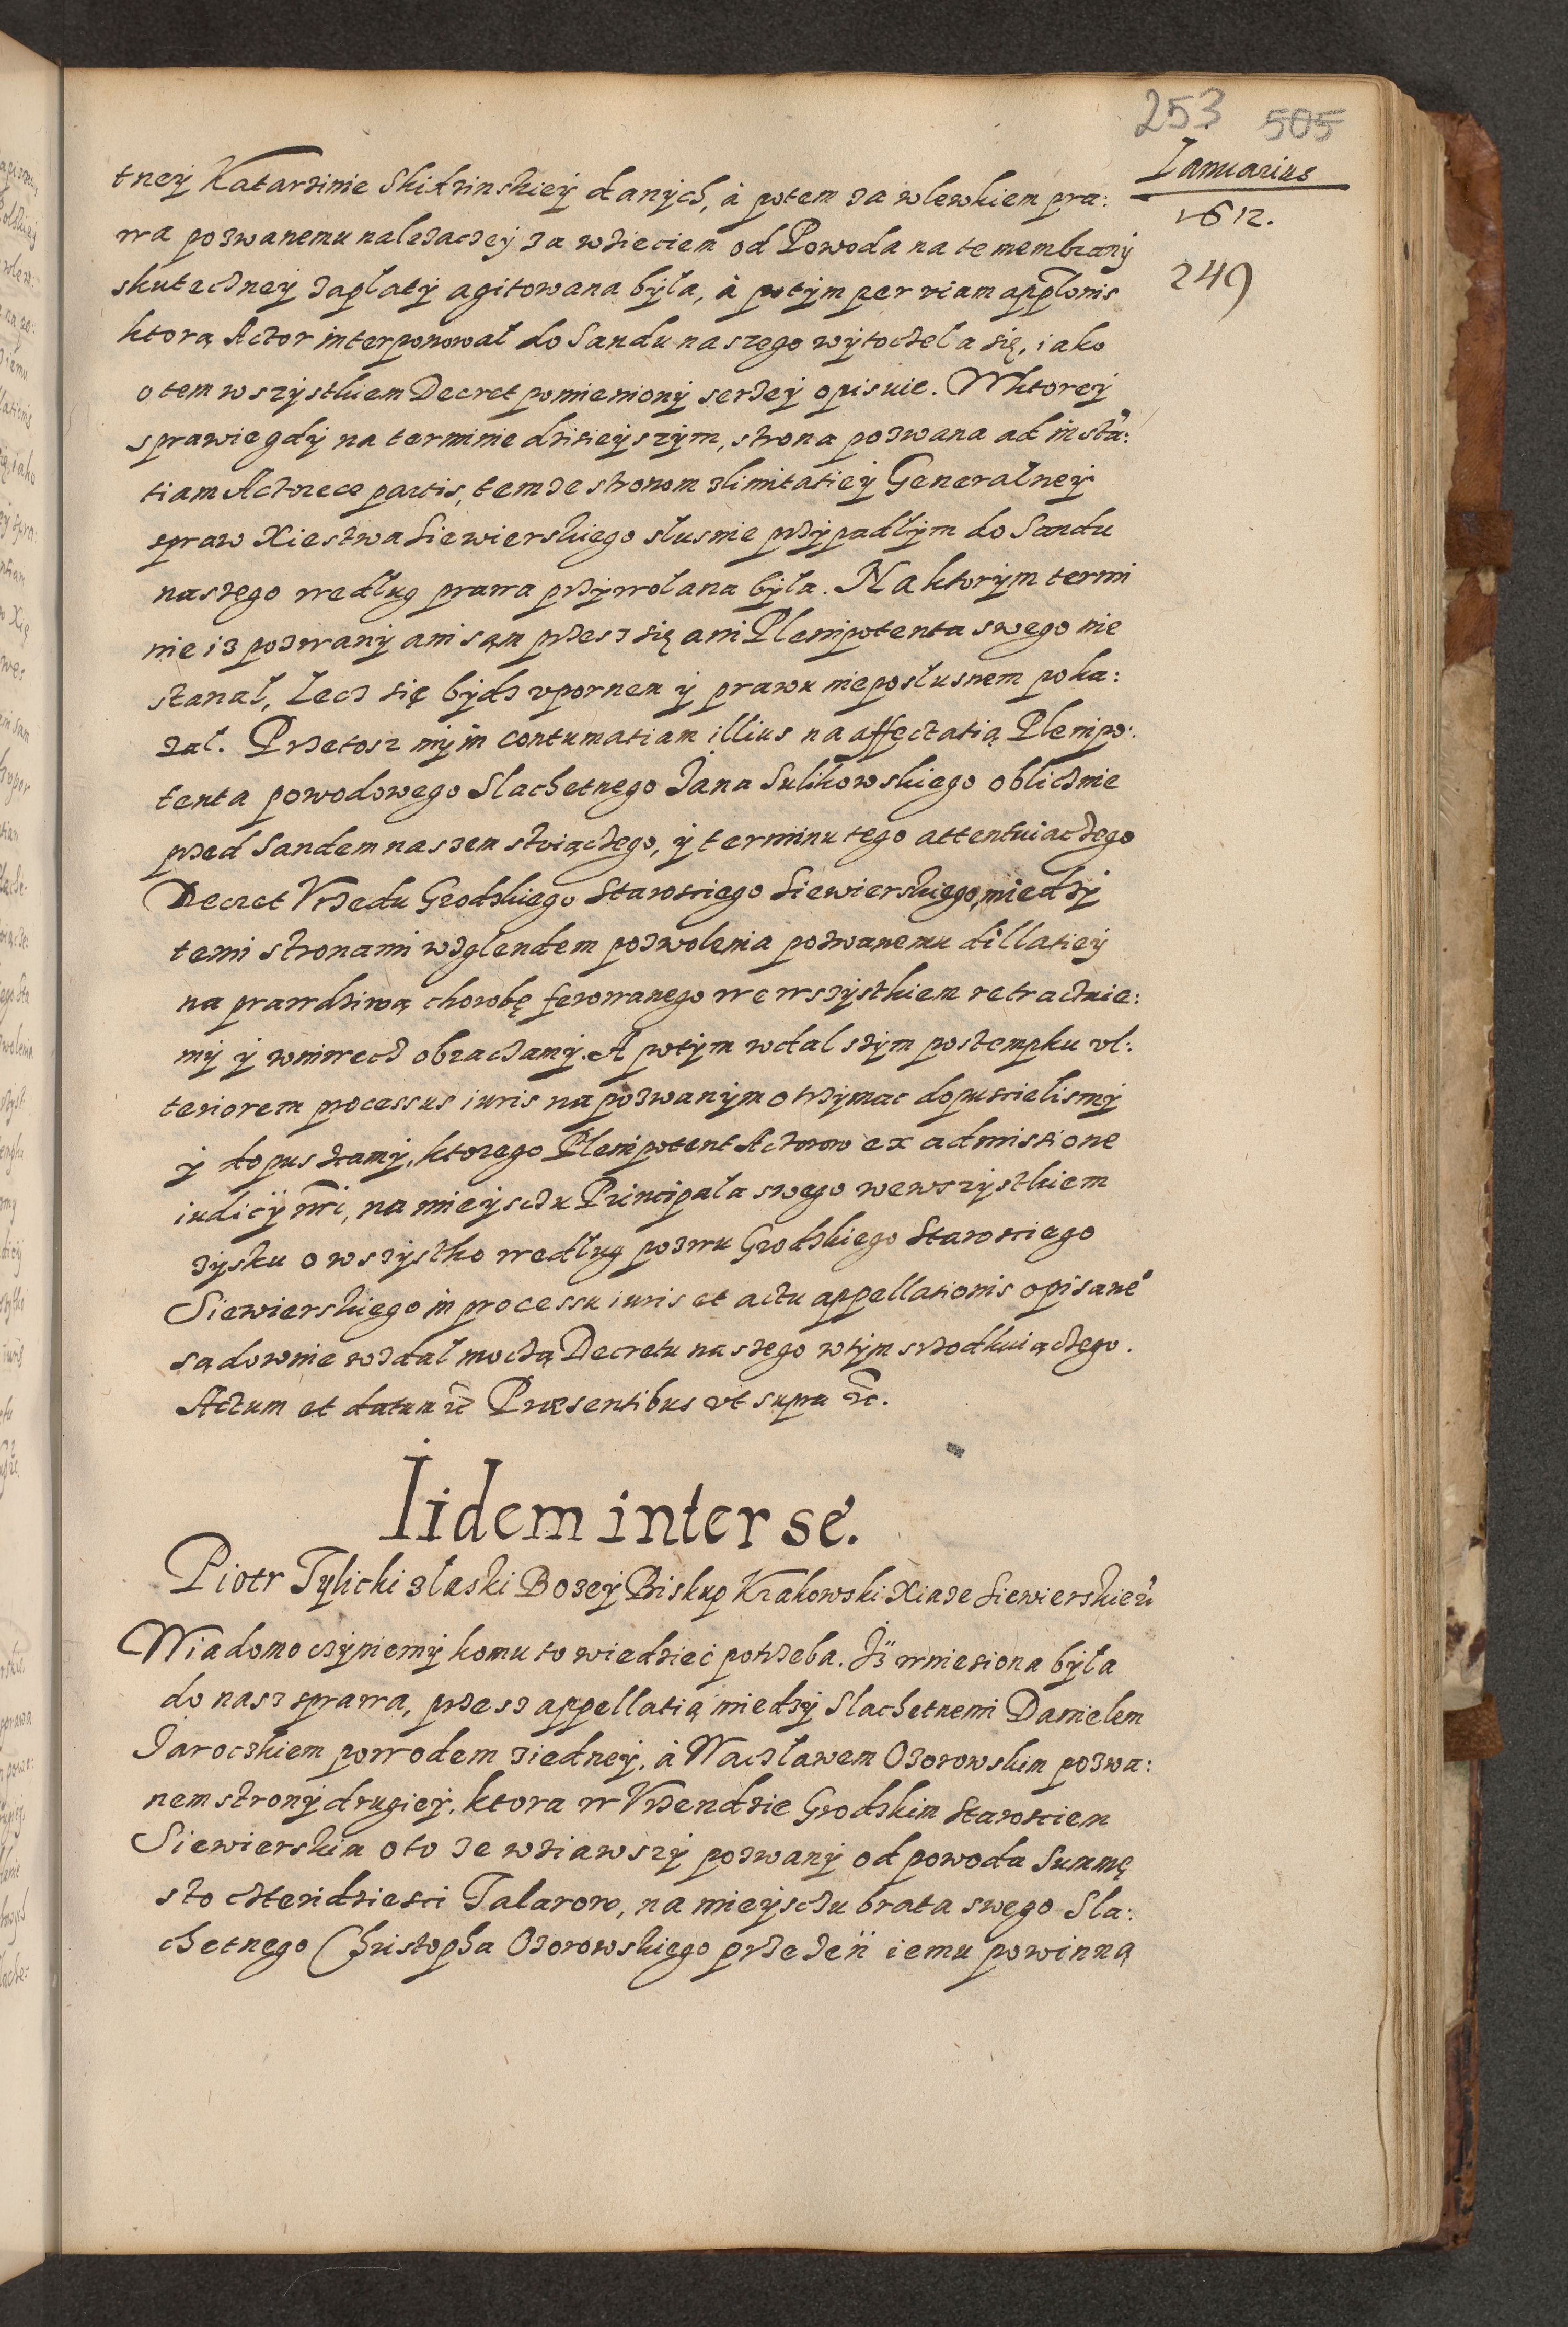 253 505
Ianuarius
1612.
249
tneÿ Katarzinie Skidzinskieÿ danÿch, à potem za wlewkiem pra:
wa pozwanemu należaczeÿ za wzieciem od Powoda na te membranÿ
skuteczneÿ zapłatÿ agitowana bÿła, à potÿm per viam appłonis
ktorą Actor interponował do Sandu naszego wÿtoczeła się, iako
o tem wszÿstkiem Decret pomienionÿ serzeÿ opisuie. Wktoreÿ
sprawie gdÿ na terminie dzisieÿszÿm, strona pozwana ad insta:
tiam Actoreæ partis, temze stronom zlimitatieÿ Generalneÿ
spraw Xiestwa Siewierskiego słusnie przÿpadłÿm do Sandu
naszego według prawa przÿwołana bÿła. Na ktorÿm termi
nie iz pozwanÿ ani sąm przesz się ani Plenipotenta swego nie
stanał, lecz się bÿdz vpornem ÿ prawu nieposłusnem poka:
zał. Przetosz mÿ in contumatiam illius na affectatią Plenipo:
tenta powodowego Slachetnego Jana Sulikowskiego oblicznie
przed Sandem naszem stoiączego, ÿ terminu tego attentuiaczego
Decret Vrzedu Grodzkiego Starosciego Siewierskiego, miedzÿ
temi stronami wzglendem pozwolenia pozwanemu dillatieÿ
na prawdziwą chorobę ferowanego we wszÿstkiem retractuie:
mÿ ÿ wniwecz obraczamÿ. A potÿm wdalszÿm postempku vl:
teriorem processus iuris na pozwanÿm otrzÿmac dopuscielismÿ
ÿ dopusczamÿ, ktorego Plenipotent Actorow ex admissione
iudicÿ nři, na mieÿsczu Principała swego wewszÿstkiem
zÿsku o wszÿstko według pozwu Grodzkiego Starosciego
Siewierskiego in processu iuris et actu appellationis opisane°
sądownie wzdał moczą Decretu naszego wtÿm srzodkuiączego.
Actum et datum ꝛc Præsentibus vt supra ꝛc.
Iidem inter se.
Piotr Tylicki złaski Bozeÿ Biskup Krakowski Xiaze Siewierskie ꝛc
Wiadomo czÿniemÿ komu to wiedzieć potrzeba. Jż wniesiona bÿła
do nasz sprawa, przesz appellatią miedzÿ Slachetnemi Danielem
Jaroczkiem powodem ziedneÿ, à Wacławem Ozorowskim pozwa:
nem stronÿ drugieÿ, ktora w Vrzendzie Grodzkim Starosciem
Siewierskim o to ze wziawszÿ pozwanÿ od powoda Summę
sto czteridziesci Talarow, na mieÿsczu brata swego Sla:
chetnego Christopha Ozorowskiego przezeń iemu powinną